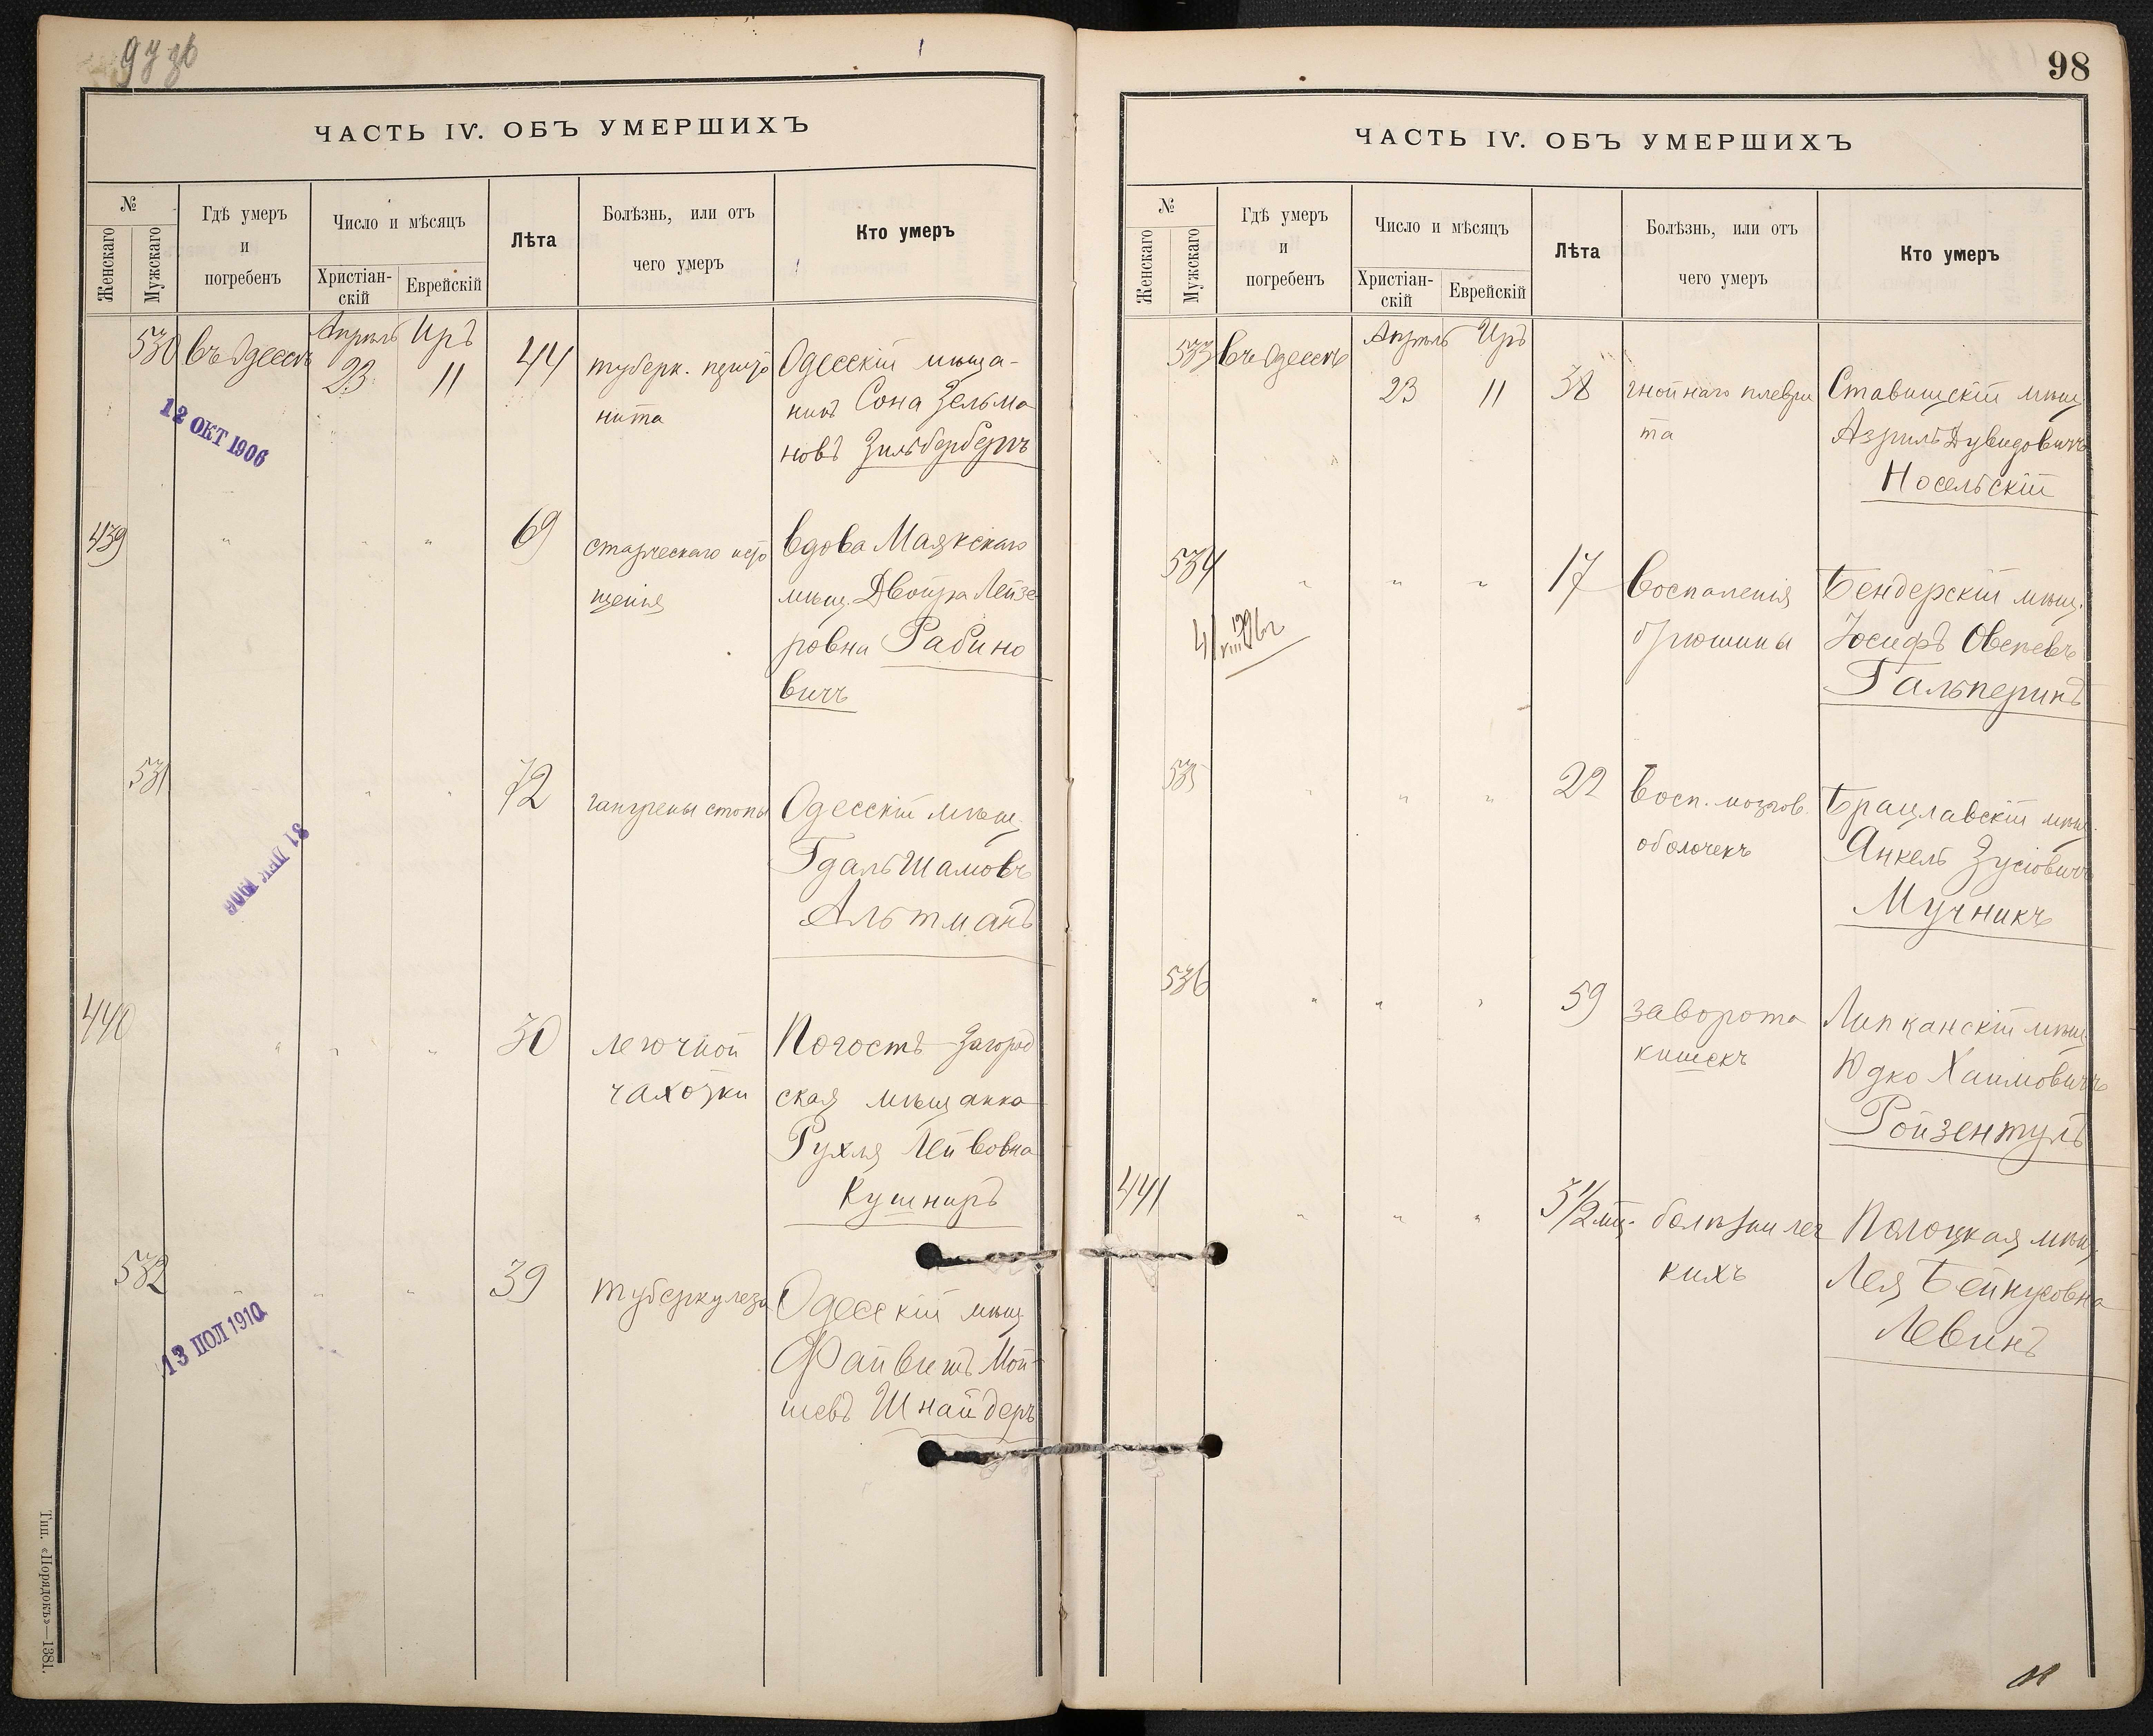 97 об
ЧАСТЬ IV. ОБЪ УМЕРШИХЪ
№
Женскаго
Мужскаго
Гдѣ умеръ
и
погребенъ
Число и мѣсяцъ
Христіан-
скій
Еврейскій
Лѣта
Болѣзнь, или отъ
чего умеръ
Кто умеръ
530 въ Одессѣ Апрѣль 23 Иръ 11 44 туберк. перито
нита
Одесскій мѣща-
нинъ Сона Зельма
новъ Зильбербергъ
12 ОКТ 1906
439 " " " 69 старческаго исто
щенія
вдова Маякскаго
мѣщ. Двойра Лейзе
ровна Рабино
вичъ
531 " " 72 гангрены стопы
Одесскій мѣщ.
Гдаль Шамовъ
Альтманъ
440 " " " 30 легочной
чахотки
Погостъ-Загород
ская мѣщанка
Рухля Лейбовна
Кушниръ
532 " " " 39 туберкулеза
Одесскій мѣщ.
Файвишъ Мой-
шевъ Шнайдеръ
13 ПОЛ 1910
Тип. «Порядокъ»—1381.
98
ЧАСТЬ IV. ОБЪ УМЕРШИХЪ
№
Женскаго
Мужскаго
Гдѣ умеръ
и
погребенъ
Число и мѣсяцъ
Христіан-
скій
Еврейскій
Лѣта
Болѣзнь, или отъ
чего умеръ
Кто умеръ
533 въ Одессѣ Апрѣль 23 Иръ 11 38 гнойнаго плеври
та
Ставищскій мѣщ.
Азриль Дувидовичъ
Носельскій
534 " " " 17 воспаленія
брюшины
Бендерскій мѣщ.
Іосифъ Овсеевъ
Гальперинъ
535 " " " 22 восп. мозгов.
оболочекъ
Брацлавскій мѣщ.
Янкель Зусіовичъ
Мучникъ
536 " " " 59 заворота
кишекъ
Липканскій мѣщ.
Юдко Хаимовичъ
Ройзентуль
441 " " " 3 1/2 мѣс. болѣзни лег
кихъ
Полоцкая мѣщ.
Лея Бейнусовна
Левинъ